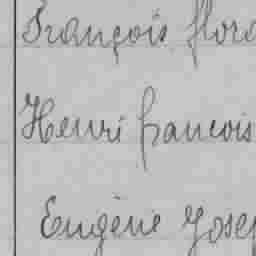 François flor
Henri francois
Eugène Josep